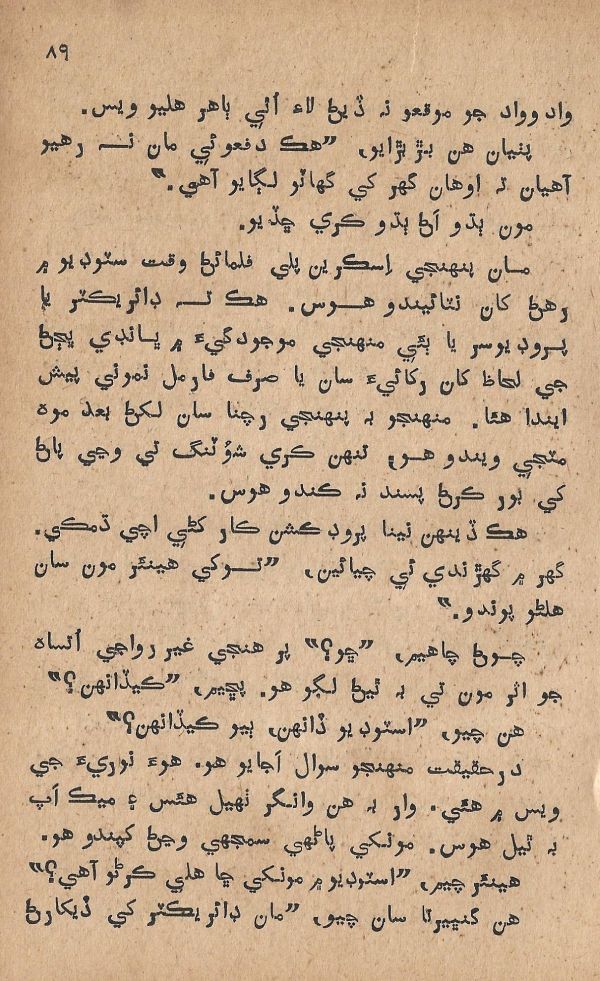 ۸۹
واد وواد جو موقعو نہ ڏيڻ لاءِ اُٿي ٻاهر هليو ويس.
پٺيان هن بڙ بڙايو، ”هڪ دفعوئي مان نــہ رهيو
آهيان تہ اوهان گهر کي گهاٽو لڳايو آهي.“
مون ٻڌو اَڻ ٻڌو ڪري ڇڏيو.
مــان پنهنجي اِسڪرين پلي فلمائڻ وقت سٽوڊيو ۾
رهڻ کان نٽائيندو هــوس. هڪ تــہ ڊائريڪٽر يا
پـروڊيوسر يا ٻئي منهنجي موجودگيءَ ۾ ڀـانڊي ڀڃڻ
جي لحاظ کان رکائيءَ سان يا صرف فارمل نموني پيش
ايندا هئا. منهنجو بہ پنهنجي رچنا سان لکڻ بعد موہ
مٽجي ويندو هـو، تنهن ڪري شؤٽنگ تي وڃي پاڻ
کي بور ڪرڻ پسند نہ ڪندو هوس.
هڪ ڏينهن نينا پروڊڪشن ڪار کڻي اچي ڌمڪي.
گهر ۾ گهڙندي ئي چيائين، ”تــوکي هينئر مون سان
هلڻو پوندو.“
چــوڻ چاهيم، ”ڇو؟“ پر هنجي غير رواجي اُتساہ
جو اثر مون تي بہ ٿيڻ لڳو هو. پڇيم، ”ڪيڏانهن؟“
هن چيو، ”اسٽوڊيو ڏانهن، ٻيو ڪيڏانهن؟“
درحقيقت منهنجو سوال اَجايو هو. هوءَ نوريءَ جي
ويس ۾ هئي. وار بہ هن وانگر ٺهيل هئس ۽ ميڪ اَپ
بہ ٿيل هوس. مونکي پاڻهي سمجهي وڃڻ کپندو هو.
هينئر چيم، ”اسٽوڊيو ۾ مونکي ڇا هلي ڪرڻو آهي؟“
هن گنڀيرتا سان چيو، ”مان ڊائريڪٽر کي ڏيکارڻ